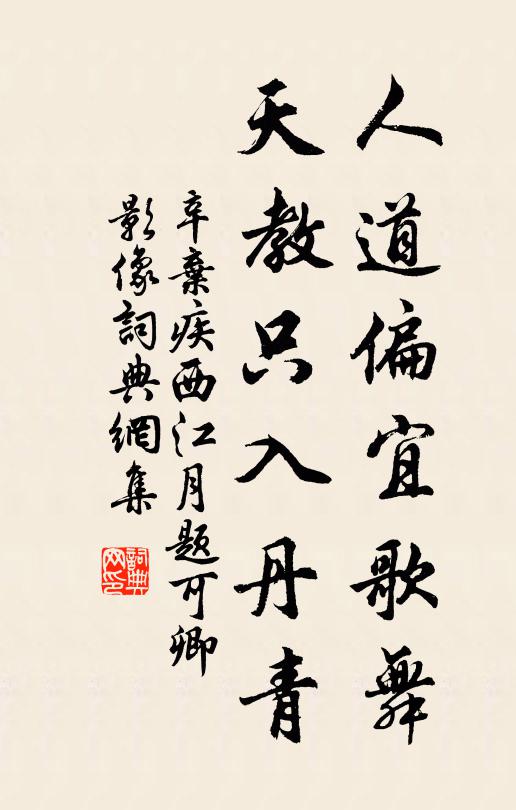 人道偏宜歌舞
天教只入丹青
辛棄疾西江月題可卿
影像詞典網集
詞典网印